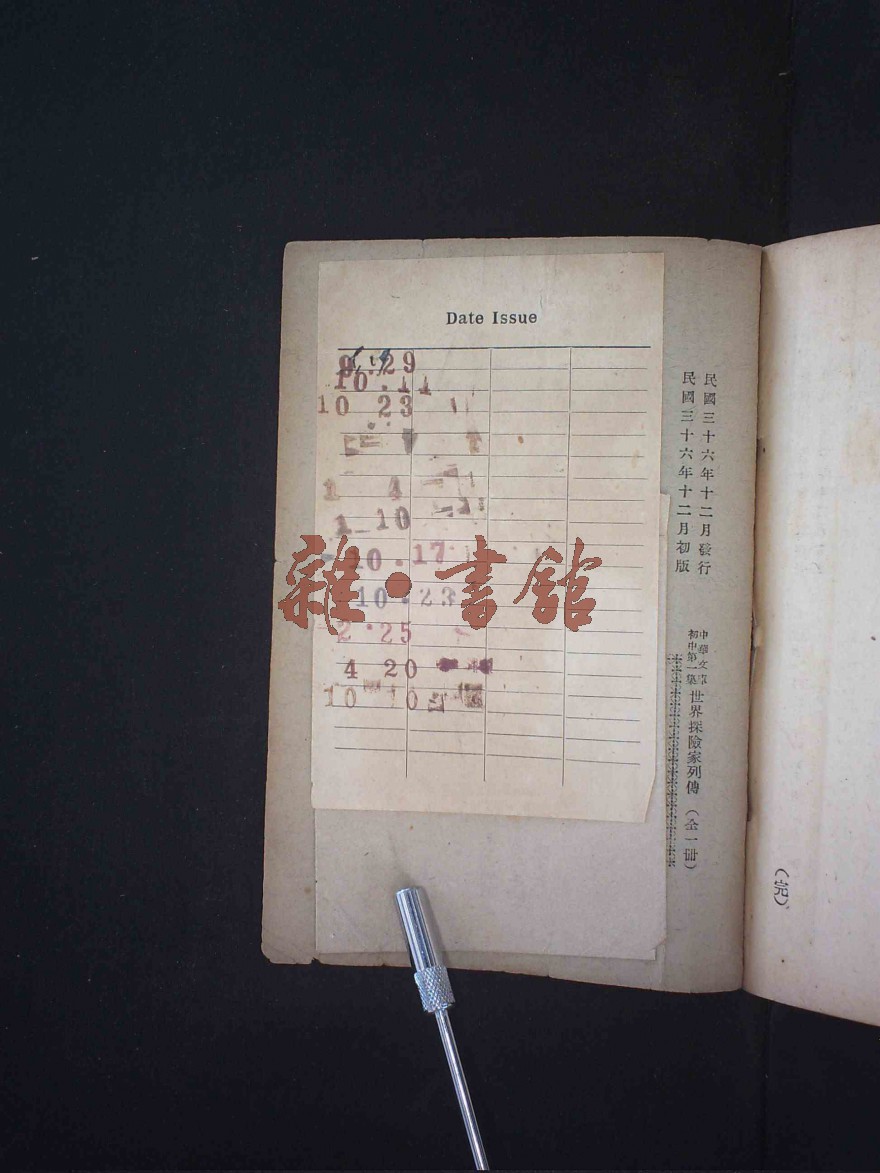 民國三十六年十二月發行
民國三十六年十二月初版
中華文庫
初中第一集
世界探險家列傳（全一冊）
Date Issue
29
10.14
10 23
1 4
1 10
10.17
10.23
2.25
4 20
10 10
雜·書館
（完）